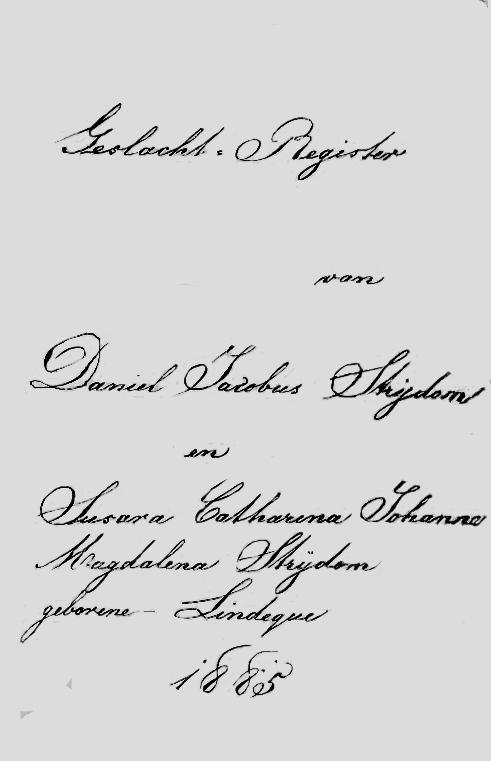 Geslacht = Register
van
Daniel Jacobus Strÿdom
en
Susara Catharina Johanna
Magdalena Strÿdom
geborene – Lindeque
1885